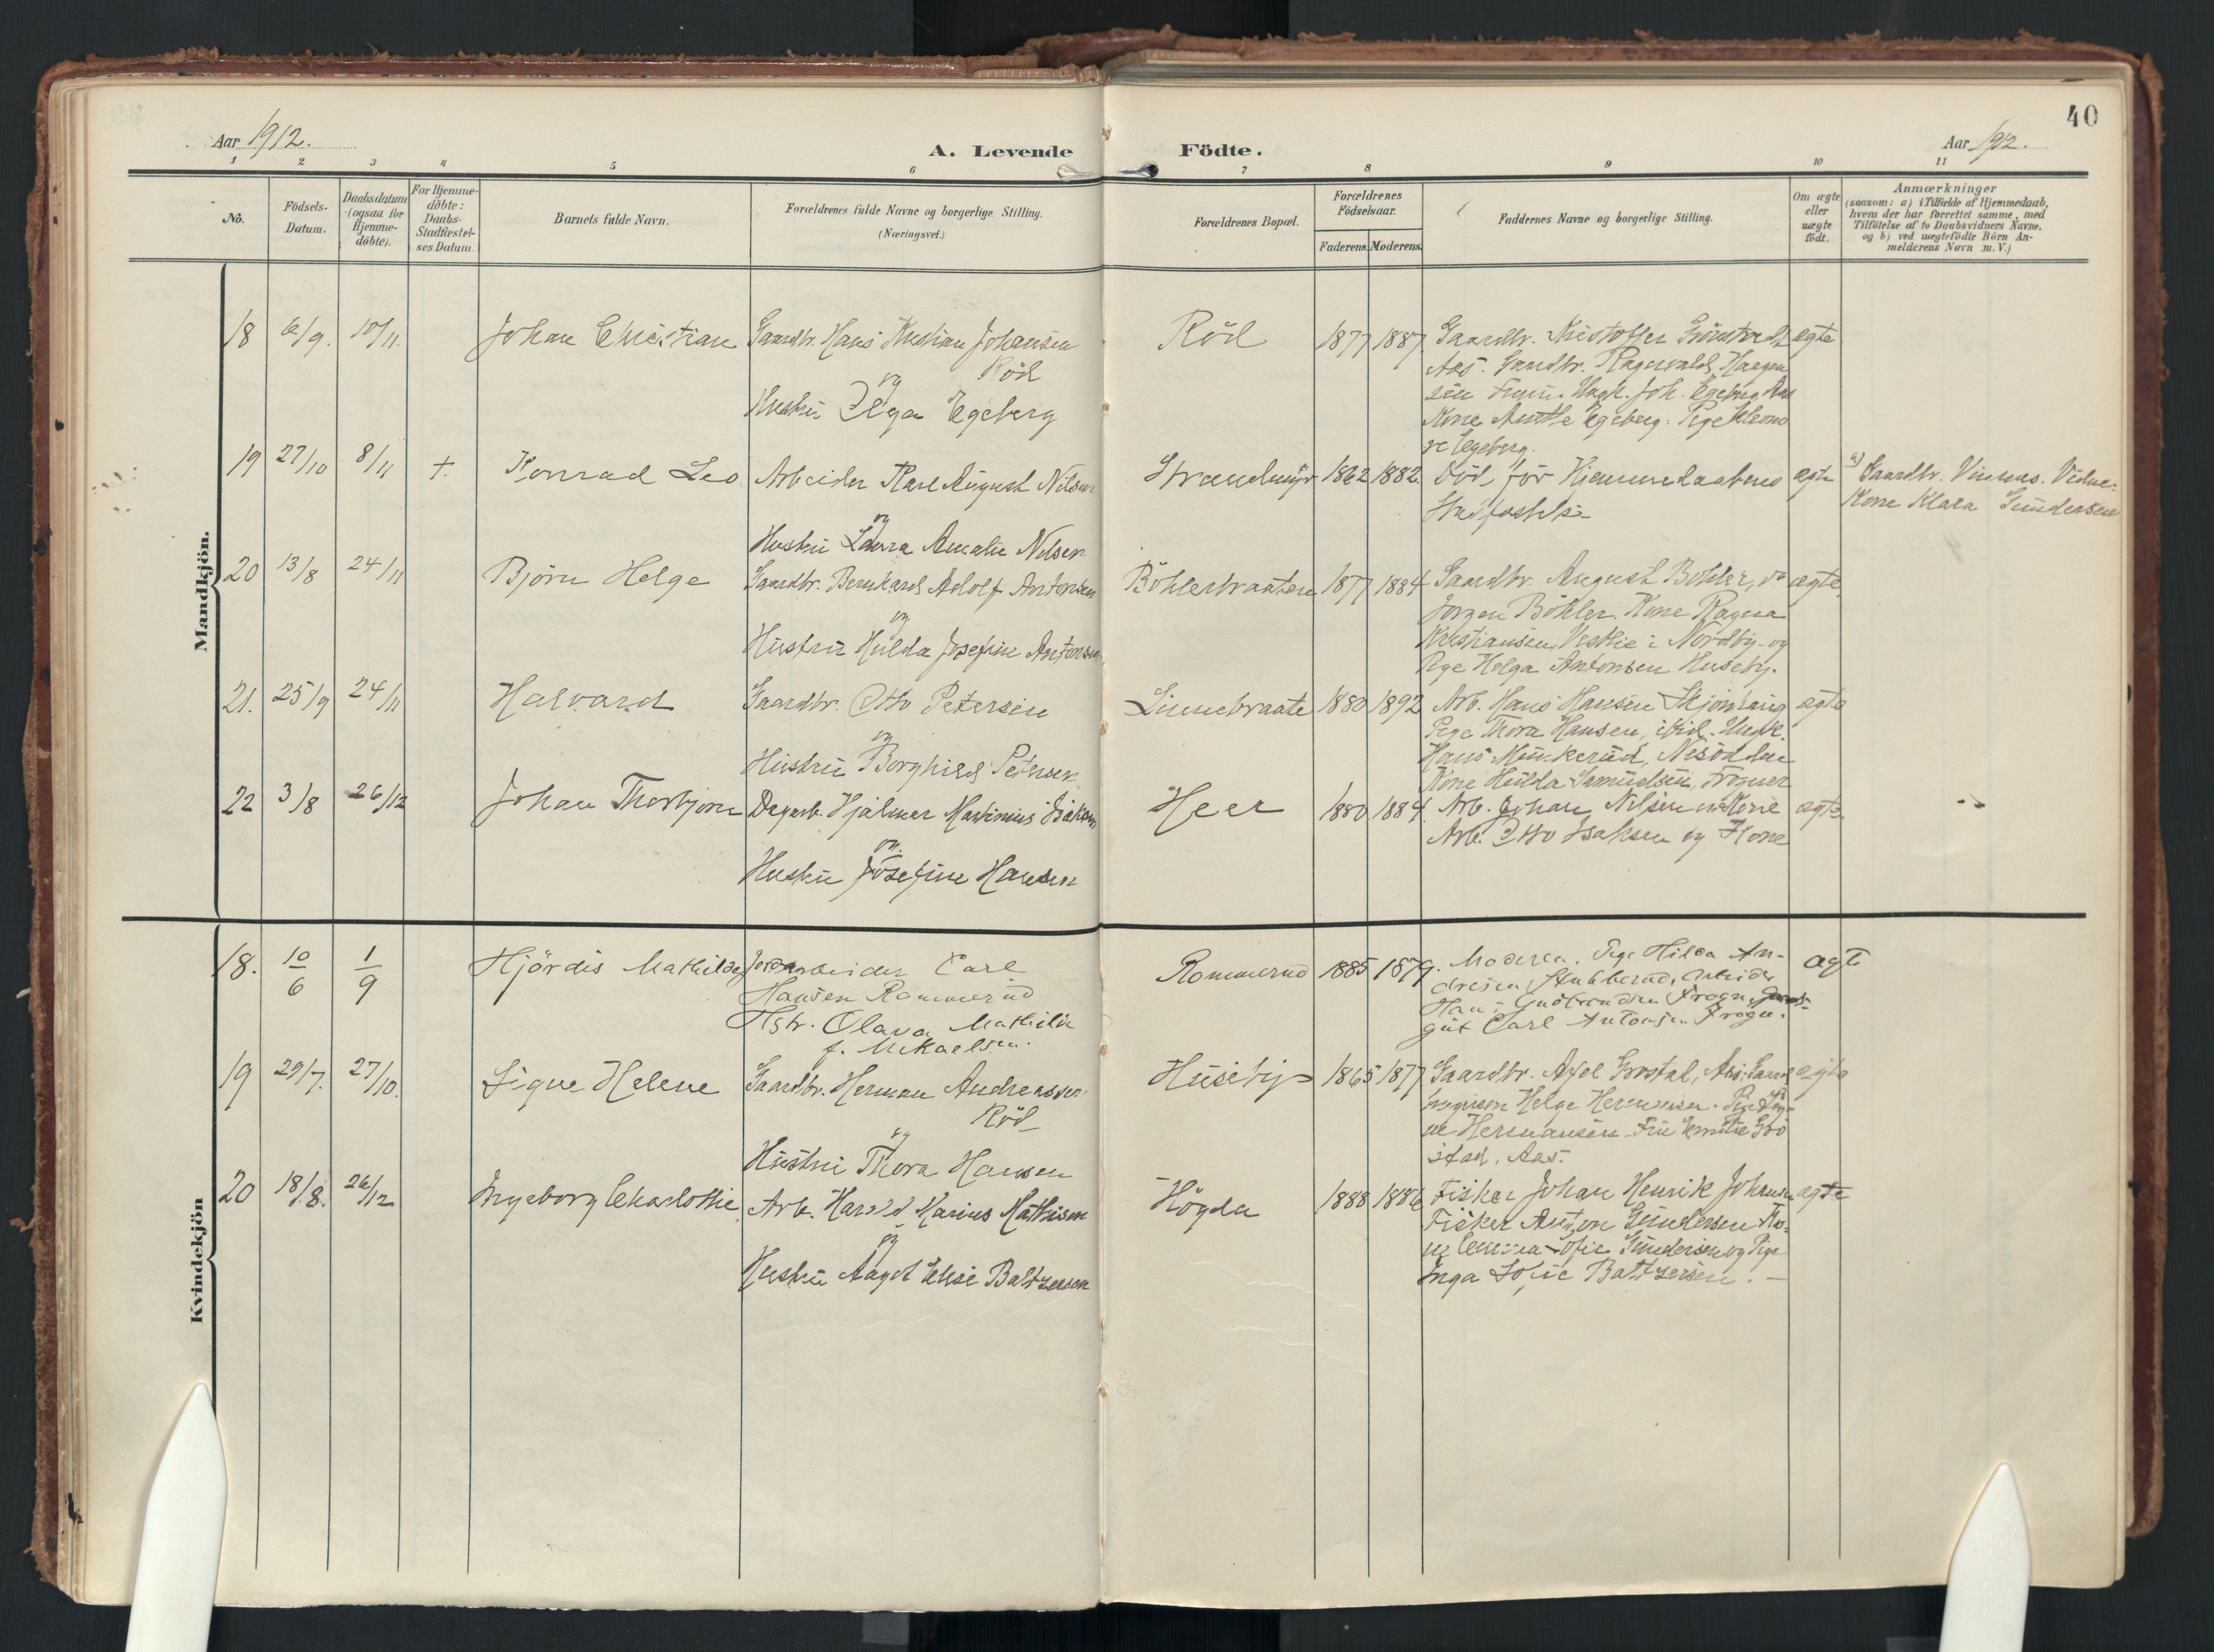 40
Aar 1912.
A. Levende
Födte.
Aar 1912.
1 2 3 4 5 6 7 8 9 10 11
No.
Födsels-
Datum.
Daabsdatum
(ogsaa for
Hjemme-
döbte).
For Hjemme-
döbte:
Daabs-
Stadfæstel-
ses Datum.
Barnets fulde Navn.
Forældrenes fulde Navne og borgerlige Stilling.
(Næringsvei.)
Forældrenes Bopæl.
Forældrenes
Födselsaar.
Faderens.
Moderens.
Faddernes Navne og borgerlige Stilling.
Om ægte
eller
uægte
födt.
Anmærkninger
(saasom: a) i Tilfælde af Hjemmedaab,
hvem der har forrettet samme, med
Tilföielse af to Daabsvidners Navne,
og b) ved uægtefödte Börn An-
melderens Navn m. V.)
Mandkjön.
18 6/9. 10/11. Johan Christian Gaardbr. Hans Kristian Johansen
Röd
og
Hustru Helga Egeberg
Röd 1877 1887 Gaardbr. Kristoffer ægte
Aas. Gaardbr. Ragnvald Haagen
sen Ungk. Joh. Egeberg Aas
Kone Egeberg. Pige
Egeberg.
19 27/10 8/11 +. Konrad Leo Arbeider Karl August Nilsen
og
Hustru Laura Amalie Nilsen
Strandmyr 1862 1882. Död för Hjemmedaabens ægte
Stadfæstelse
a) Gaardbr. Vidne:
Kone Klara Gundersen
20 13/8 24/11 Björn Helge Gaardbr. Bernhard Adolf Antonsen
og
Hustru Hulda Josefine Antonsen
Böhlerbraaten 1877 1884 Gaardbr. August Böhler, do ægte
Jörgen Böhler. Kone Ragna
Kristiansen, Vestlie i Nordby og
Pige Helga Antonsen Huseby.
21. 25/9 24/11 Halvard Gaardbr. Otto Petersen
og
Hustru Borghild Petersen
Linnebraate 1880 1892 Arb. Hans Hansen ægte
Pige Thora Hansen, ibid. Ungk.
Hans Munkerud, Nesodden
Kone Hulda Samuelsen, Frogner
22 3/8 26/12 Johan Thorbjörn Dagarb. Hjalmar Martinius Isaksen
og
Hustru Josefine Hansen
Heer 1880 1884 Arb. Johan Nilsen og Kone ægte.
Arb. Otto Isaksen og Kone
Kvindekjön
18. 10/6 1/9 Hjördis Mathilde Jordarbeider Carl
Hansen Rommerud
Hstr. Olava Mathilde
f. Mikaelsen.
Rommerud 1885 1879. Moderen. Pige Hilda An- ægte
dresen Stubberud, Arbeider
Hans Gudbrandsen Frogn,
gut Carl Antonsen Frogn.
19 29/7. 27/10. Signe Helene Gaardbr. Herman Andreassen
Röd
og
Hustru Thora Hansen
Huseby 1865 1877 Gaardbr. Axel Aas. ægte
Helge Hermansen. Pige Sig-
ne Hermansen. Fru Emilie Grö
stad. Aas.
20 18/8. 26/12 Ingeborg Charlotte Arb. Harald Marius Mathisen
og
Hustru Aagot Elise Baltzersen
Högda 1888 1886 Fisker Johan Henrik Johansen ægte
Fisker Anton Gundersen Ko-
ne Emma Sofie Gundersen og Pige
Inga Sofie Baltzersen. –